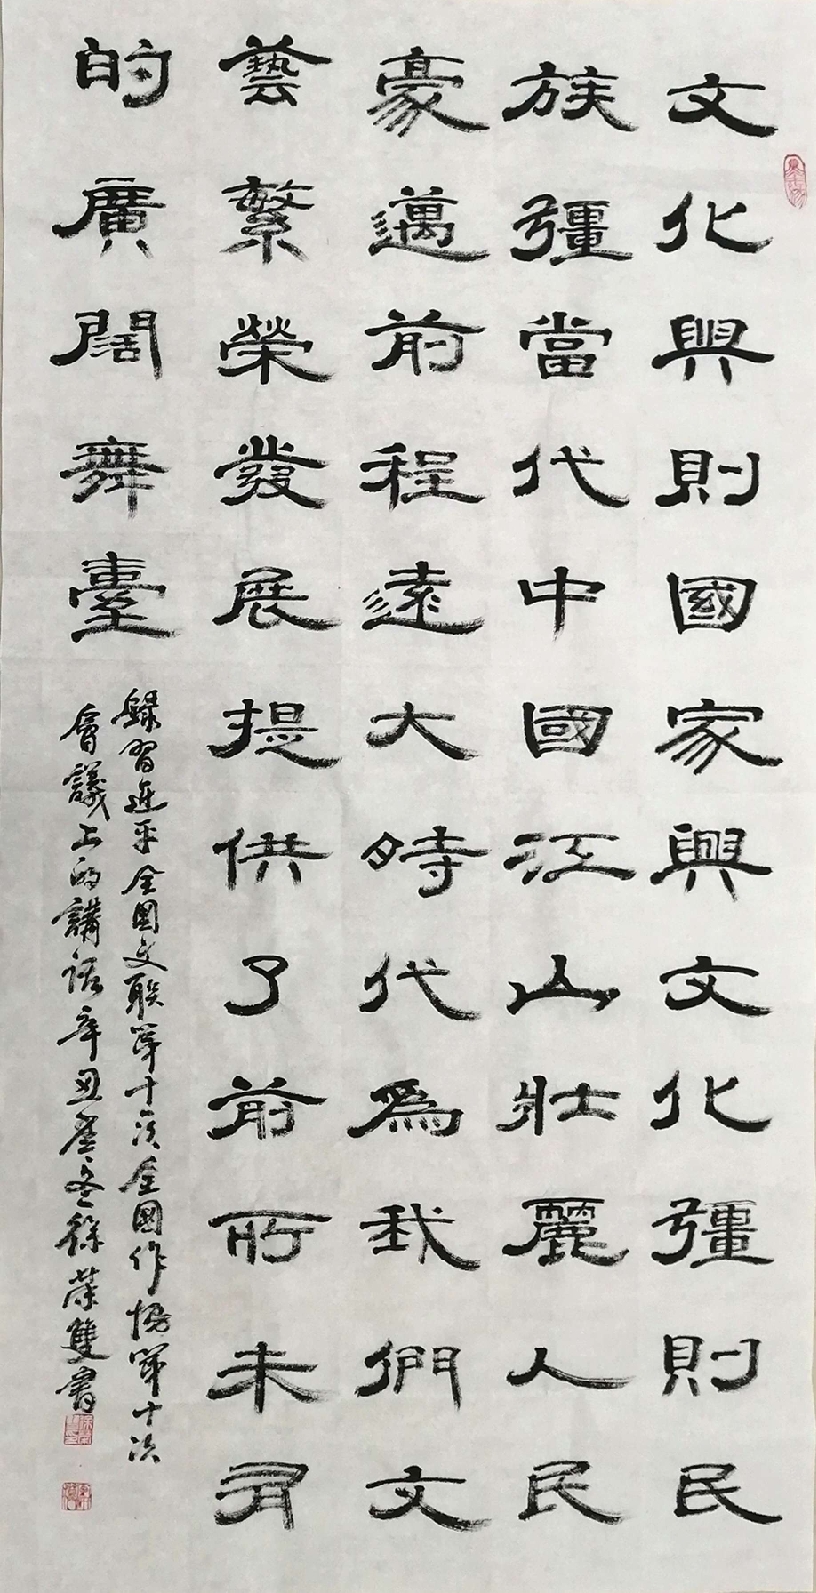 文化興則國家興文化彊則民
族彊當代中國江山壯麗人民
豪邁前程遠大時代爲我們文
藝繁榮發展提供了前所未有
的廣闊舞臺
錄習近平全國文联第十次全國作協第十次
會議上的講話辛丑孟冬徐榮雙書